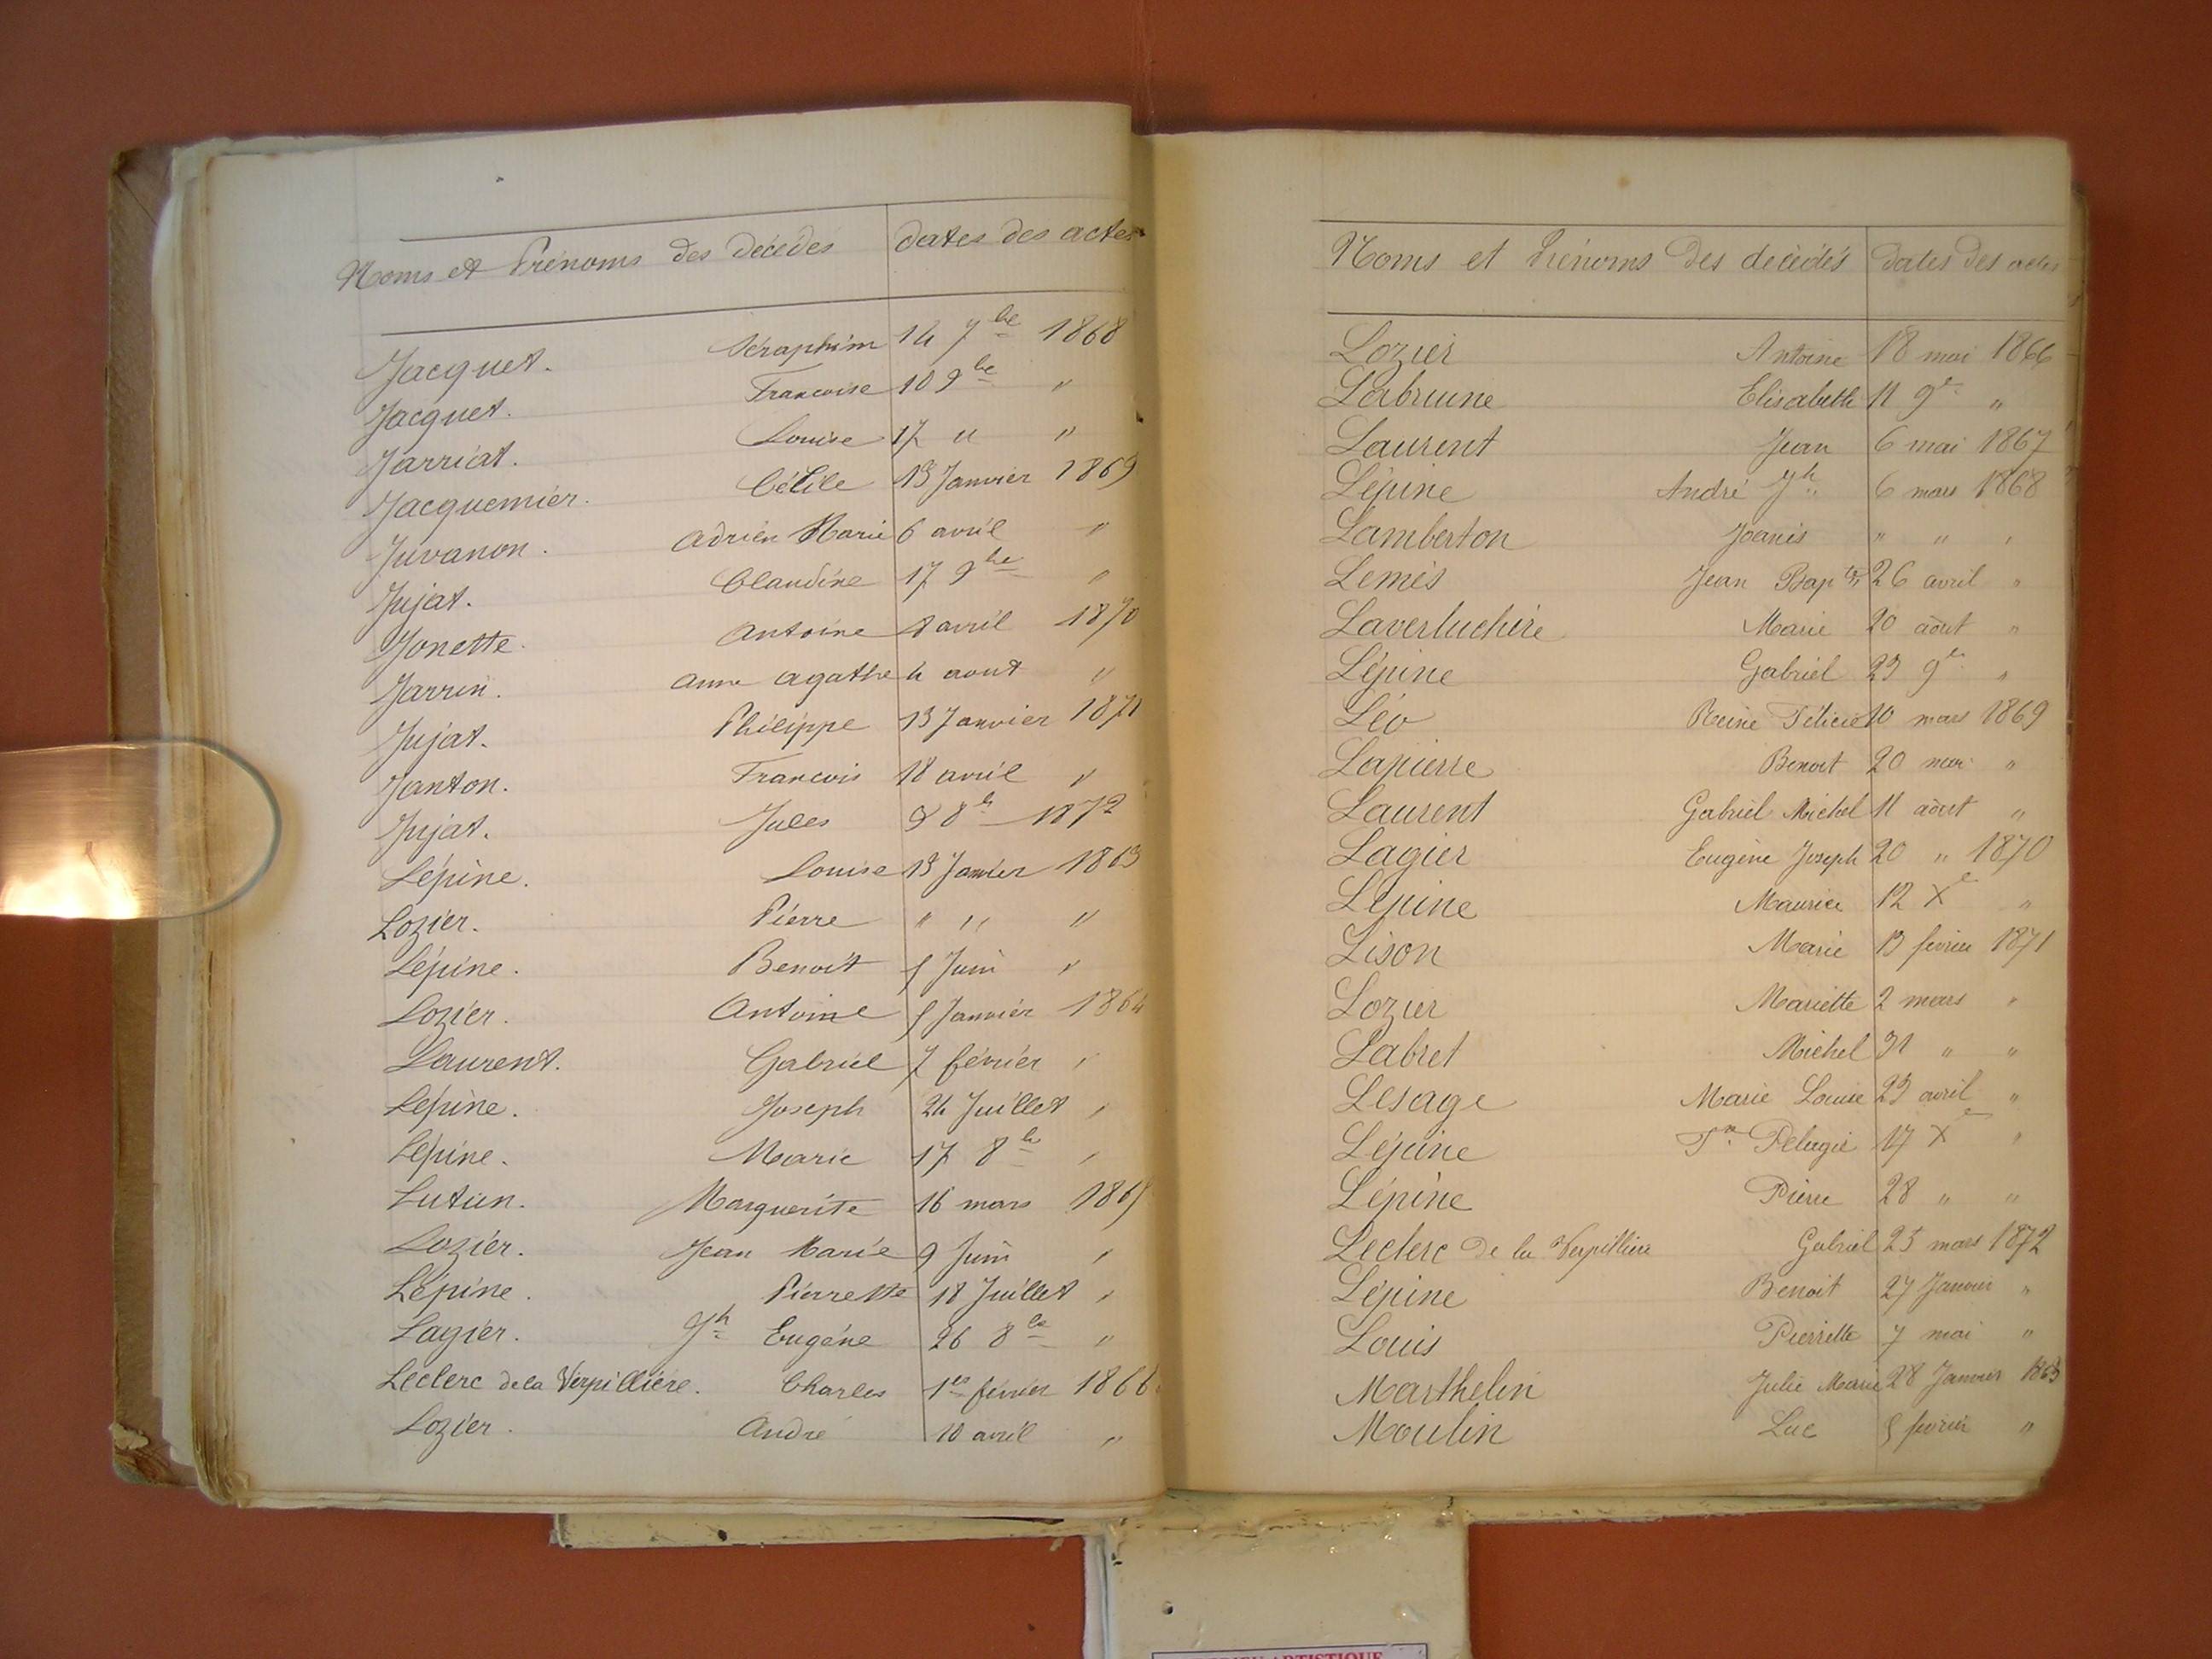 Noms et Prénoms des décédés dates des actes
Jacquet. Séraphim 14 7bre 1868
Jacquet. Francoise 10 9bre "
Jarriat. Louise 17 " "
Jacquemier. Cécile 13 Janvier 1869
Juvanon. Adrien Marie 6 avril "
Jujat. Claudine 17 9bre "
Jonette. Antoine 8 avril 1870
Jarrin. Anne Agathe 4 aout "
Jujat. Philippe 13 Janvier 1871
Janton. Francois 18 avril "
Jujat. Jules 9 8bre 1872
Lépine. Louise 13 Janvier 1863
Lozier. Pierre " " "
Lépine. Benoit 5 Juin "
Lozier. Antoine 5 Janvier 1864
Laurent. Gabriel 7 février "
Lépine. Joseph 24 Juillet "
Lépine. Marie 17 8bre "
Lutun. Marguerite 16 mars 1865
Lozier. Jean Marie 9 Juin "
Lépine. Pierrette 18 Juillet "
Lagier. Jh Eugéne 26 8bre "
Leclerc de la Verpilliére. Charles 1er février 1866
Lozier. André 10 avril "
Noms et Prénoms des décédés dates des actes
Lozier Antoine 18 mai 1866
Labruine Elisabeth 11 9e "
Laurent Jean 6 mai 1867
Lépine André Jh 6 mars 1868
Lamberton Joanis " " "
Lemis Jean Bapte 26 avril "
Laverluchère Marie 20 août "
Lépine Gabriel 23 9bre "
Léo Reine Félicie 10 mars 1869
Lapierre Benoit 20 mai "
Laurent Gabriel Michel 11 août "
Lagier Eugène Joseph 20 " 1870
Lépine Maurice 12 Xe "
Lison Marie 13 février 1871
Lozier Mariette 2 mars "
Labret Michel 31 " "
Lesage Marie Louise 23 avril "
Lépine Fse Pelagie 17 Xe "
Lépine Pierre 28 " "
Leclerc de la Verpillière Gabriel 25 mars 1872
Lépine Benoit 27 Janvier "
Louis Pierrette 7 mai "
Marthelin Julie Marie 28 Janvier 1863
Moulin Luc 5 février "
ARTISTIQUE